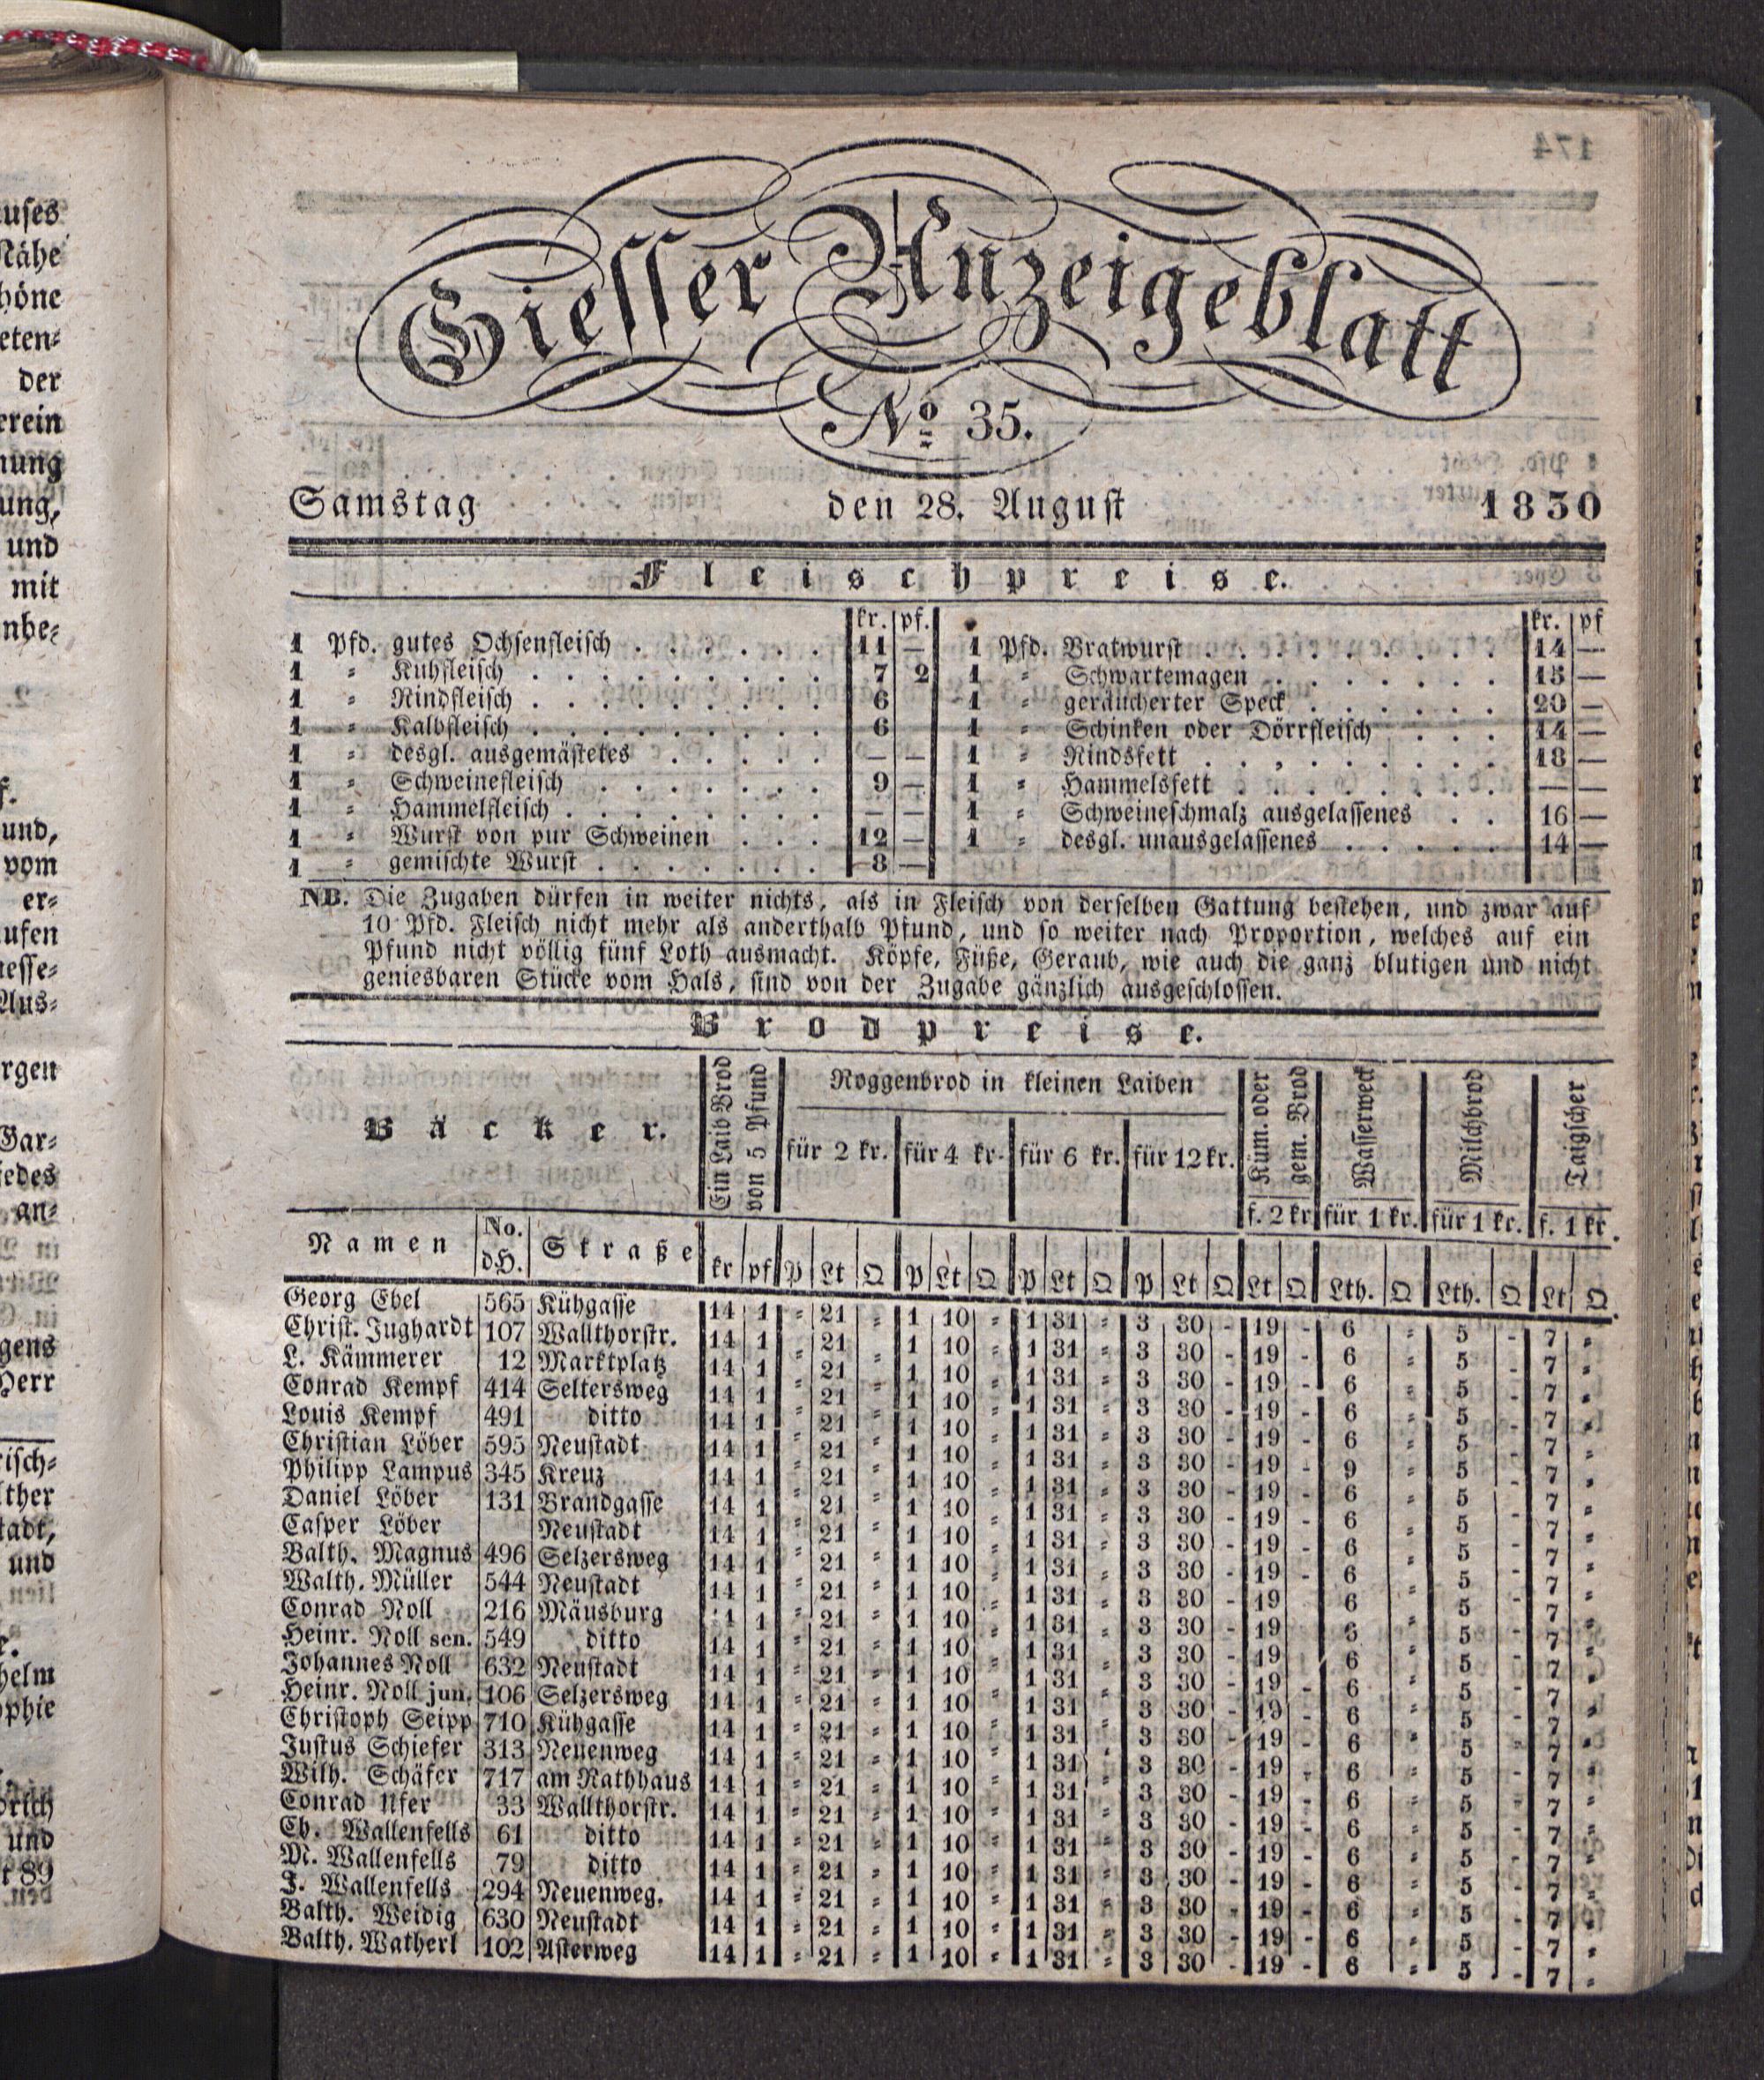 Giesser Anzeigeblatt
No 35.
Samstag den 28. August 1830
Fleischpreise.
kr. pf.
1 Pfd. gutes Ochsenfleisch . . . . . . 11 —
1 " Kuhfleisch . . . . . . . . . 7 2
1 " Rindfleisch . . . . . . . . . 6
1 " Kalbfleisch . . . . . . . . . 6
1 " desgl. ausgemästetes . . . . . — —
1 " Schweinefleisch . . . . . . . 9 —
1 " Hammelfleisch . . . . . . . . — —
1 " Wurst von pur Schweinen . . . 12 —
1 " gemischte Wurst . . . . . . . 8 —
kr. pf
1 Pfd. Bratwurst . . . . . . . . . 14 —
1 " Schwartemagen . . . . . . . 15 —
1 " geräucherter Speck . . . . . . 20 —
1 " Schinken oder Dörrfleisch . . . 14 —
1 " Rindsfett . . . . . . . . . 18 —
1 " Hammelsfett . . . . . . . . — —
1 " Schweineschmalz ausgelassenes . . 16 —
1 " desgl. unausgelassenes . . . . . 14 —
NB. Die Zugaben dürfen in weiter nichts, als in Fleisch von derselben Gattung bestehen, und zwar auf
10 Pfd. Fleisch nicht mehr als anderthalb Pfund, und so weiter nach Proportion, welches auf ein
Pfund nicht völlig fünf Loth ausmacht. Köpfe, Füße, Geraub, wie auch die ganz blutigen und nicht
geniesbaren Stücke vom Hals, sind von der Zugabe gänzlich ausgeschlossen.
Brodpreise.
Bäcker.
Ein Laib Brod
von 5 Pfund
Roggenbrod in kleinen Laiben
für 2 kr. für 4 kr. für 6 kr. für 12 kr.
Küm. oder
gem. Brod
f. 2 kr.
Wasserweck
für 1 kr.
Milchbrod
für 1 kr.
Taigscher
f. 1 kr.
Namen No. d.H. Straße kr pf P Lt Q P Lt Q P Lt Q P Lt Q Lt Q Lth. Q Lth. Q Lt Q
Georg Ebel 565 Kühgasse 14 1 - 21 - 1 10 - 1 31 - 3 30 - 19 - 6 - 5 - 7 -
Christ. Jughardt 107 Wallthorstr. 14 1 - 21 - 1 10 - 1 31 - 3 30 - 19 - 6 - 5 - 7 -
L. Kämmerer 12 Marktplatz 14 1 - 21 - 1 10 - 1 31 - 3 30 - 19 - 6 - 5 - 7 -
Conrad Kempf 414 Seltersweg 14 1 - 21 - 1 10 - 1 31 - 3 30 - 19 - 6 - 5 - 7 -
Louis Kempf 491 ditto 14 1 - 21 - 1 10 - 1 31 - 3 30 - 19 - 6 - 5 - 7 -
Christian Löber 595 Neustadt 14 1 - 21 - 1 10 - 1 31 - 3 30 - 19 - 9 - 5 - 7 -
Philipp Lampus 345 Kreuz 14 1 - 21 - 1 10 - 1 31 - 3 30 - 19 - 6 - 5 - 7 -
Daniel Löber 131 Brandgasse 14 1 - 21 - 1 10 - 1 31 - 3 30 - 19 - 6 - 5 - 7 -
Casper Löber Neustadt 14 1 - 21 - 1 10 - 1 31 - 3 30 - 19 - 6 - 5 - 7 -
Balth. Magnus 496 Selzersweg 14 1 - 21 - 1 10 - 1 31 - 3 30 - 19 - 6 - 5 - 7 -
Walth. Müller 544 Neustadt 14 1 - 21 - 1 10 - 1 31 - 3 30 - 19 - 6 - 5 - 7 -
Conrad Noll 216 Mäusburg 14 1 - 21 - 1 10 - 1 31 - 3 30 - 19 6 - 5 - 7 -
Heinr. Noll sen. 549 ditto 14 1 - 21 - 1 10 - 1 31 - 3 30 - 19 6 - 5 - 7 -
Johannes Noll 632 Neustadt 14 1 - 21 - 1 10 - 1 31 - 3 30 - 19 - 6 - 5 - 7 -
Heinr. Noll jun. 106 Selzersweg 14 1 - 21 - 1 10 - 1 31 - 3 30 - 19 - 6 - 5 - 7 -
Christoph Seipp 710 Kühgasse 14 1 - 21 - 1 10 - 1 31 - 3 30 - 19 - 6 - 5 - 7 -
Justus Schiefer 313 Neuenweg 14 1 - 21 - 1 10 - 1 31 - 3 30 - 19 - 6 - 5 - 7 -
Wilh. Schäfer 717 am Rathhaus 14 1 - 21 - 1 10 - 1 31 - 3 30 - 19 - 6 - 5 - 7 -
Conrad Ufer 33 Wallthorstr. 14 1 - 21 - 1 10 - 1 31 - 3 30 - 19 - 6 - 5 - 7 -
Ch. Wallenfells 61 ditto 14 1 - 21 - 1 10 - 1 31 - 3 30 - 19 - 6 - 5 - 7 -
M. Wallenfells 79 ditto 14 1 - 21 - 1 10 - 1 31 - 3 30 - 19 - 6 - 5 - 7 -
J. Wallenfells 294 Neuenweg. 14 1 - 21 - 1 10 - 1 31 - 3 30 - 19 - 6 - 5 - 7 -
Balth. Weidig 630 Neustadt 14 1 - 21 - 1 10 - 1 31 - 3 30 - 19 - 6 - 5 - 7 -
Balth. Watherl 102 Asterweg 14 1 - 21 - 1 10 - 1 31 - 3 30 - 19 - 6 - 5 - 7 -